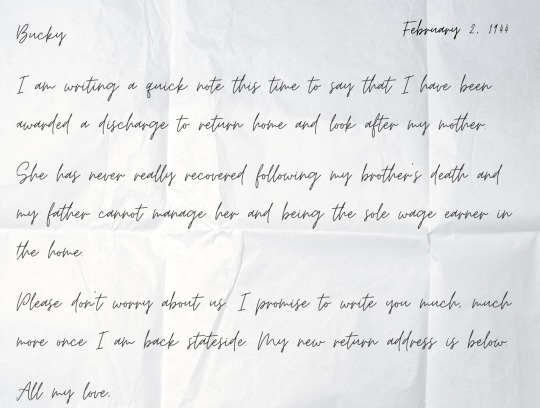 Bucky
February 2, 1944
I am writing a quick note this time to say that I have been
awarded a discharge to return home and look after my mother
She has never really recovered following my brother's death and
my father cannot manage her and being the sole wage earner in
the home.
Please don't worry about us. I promise to write you much, much
more once I am back stateside. My new return address is below.
All my love,